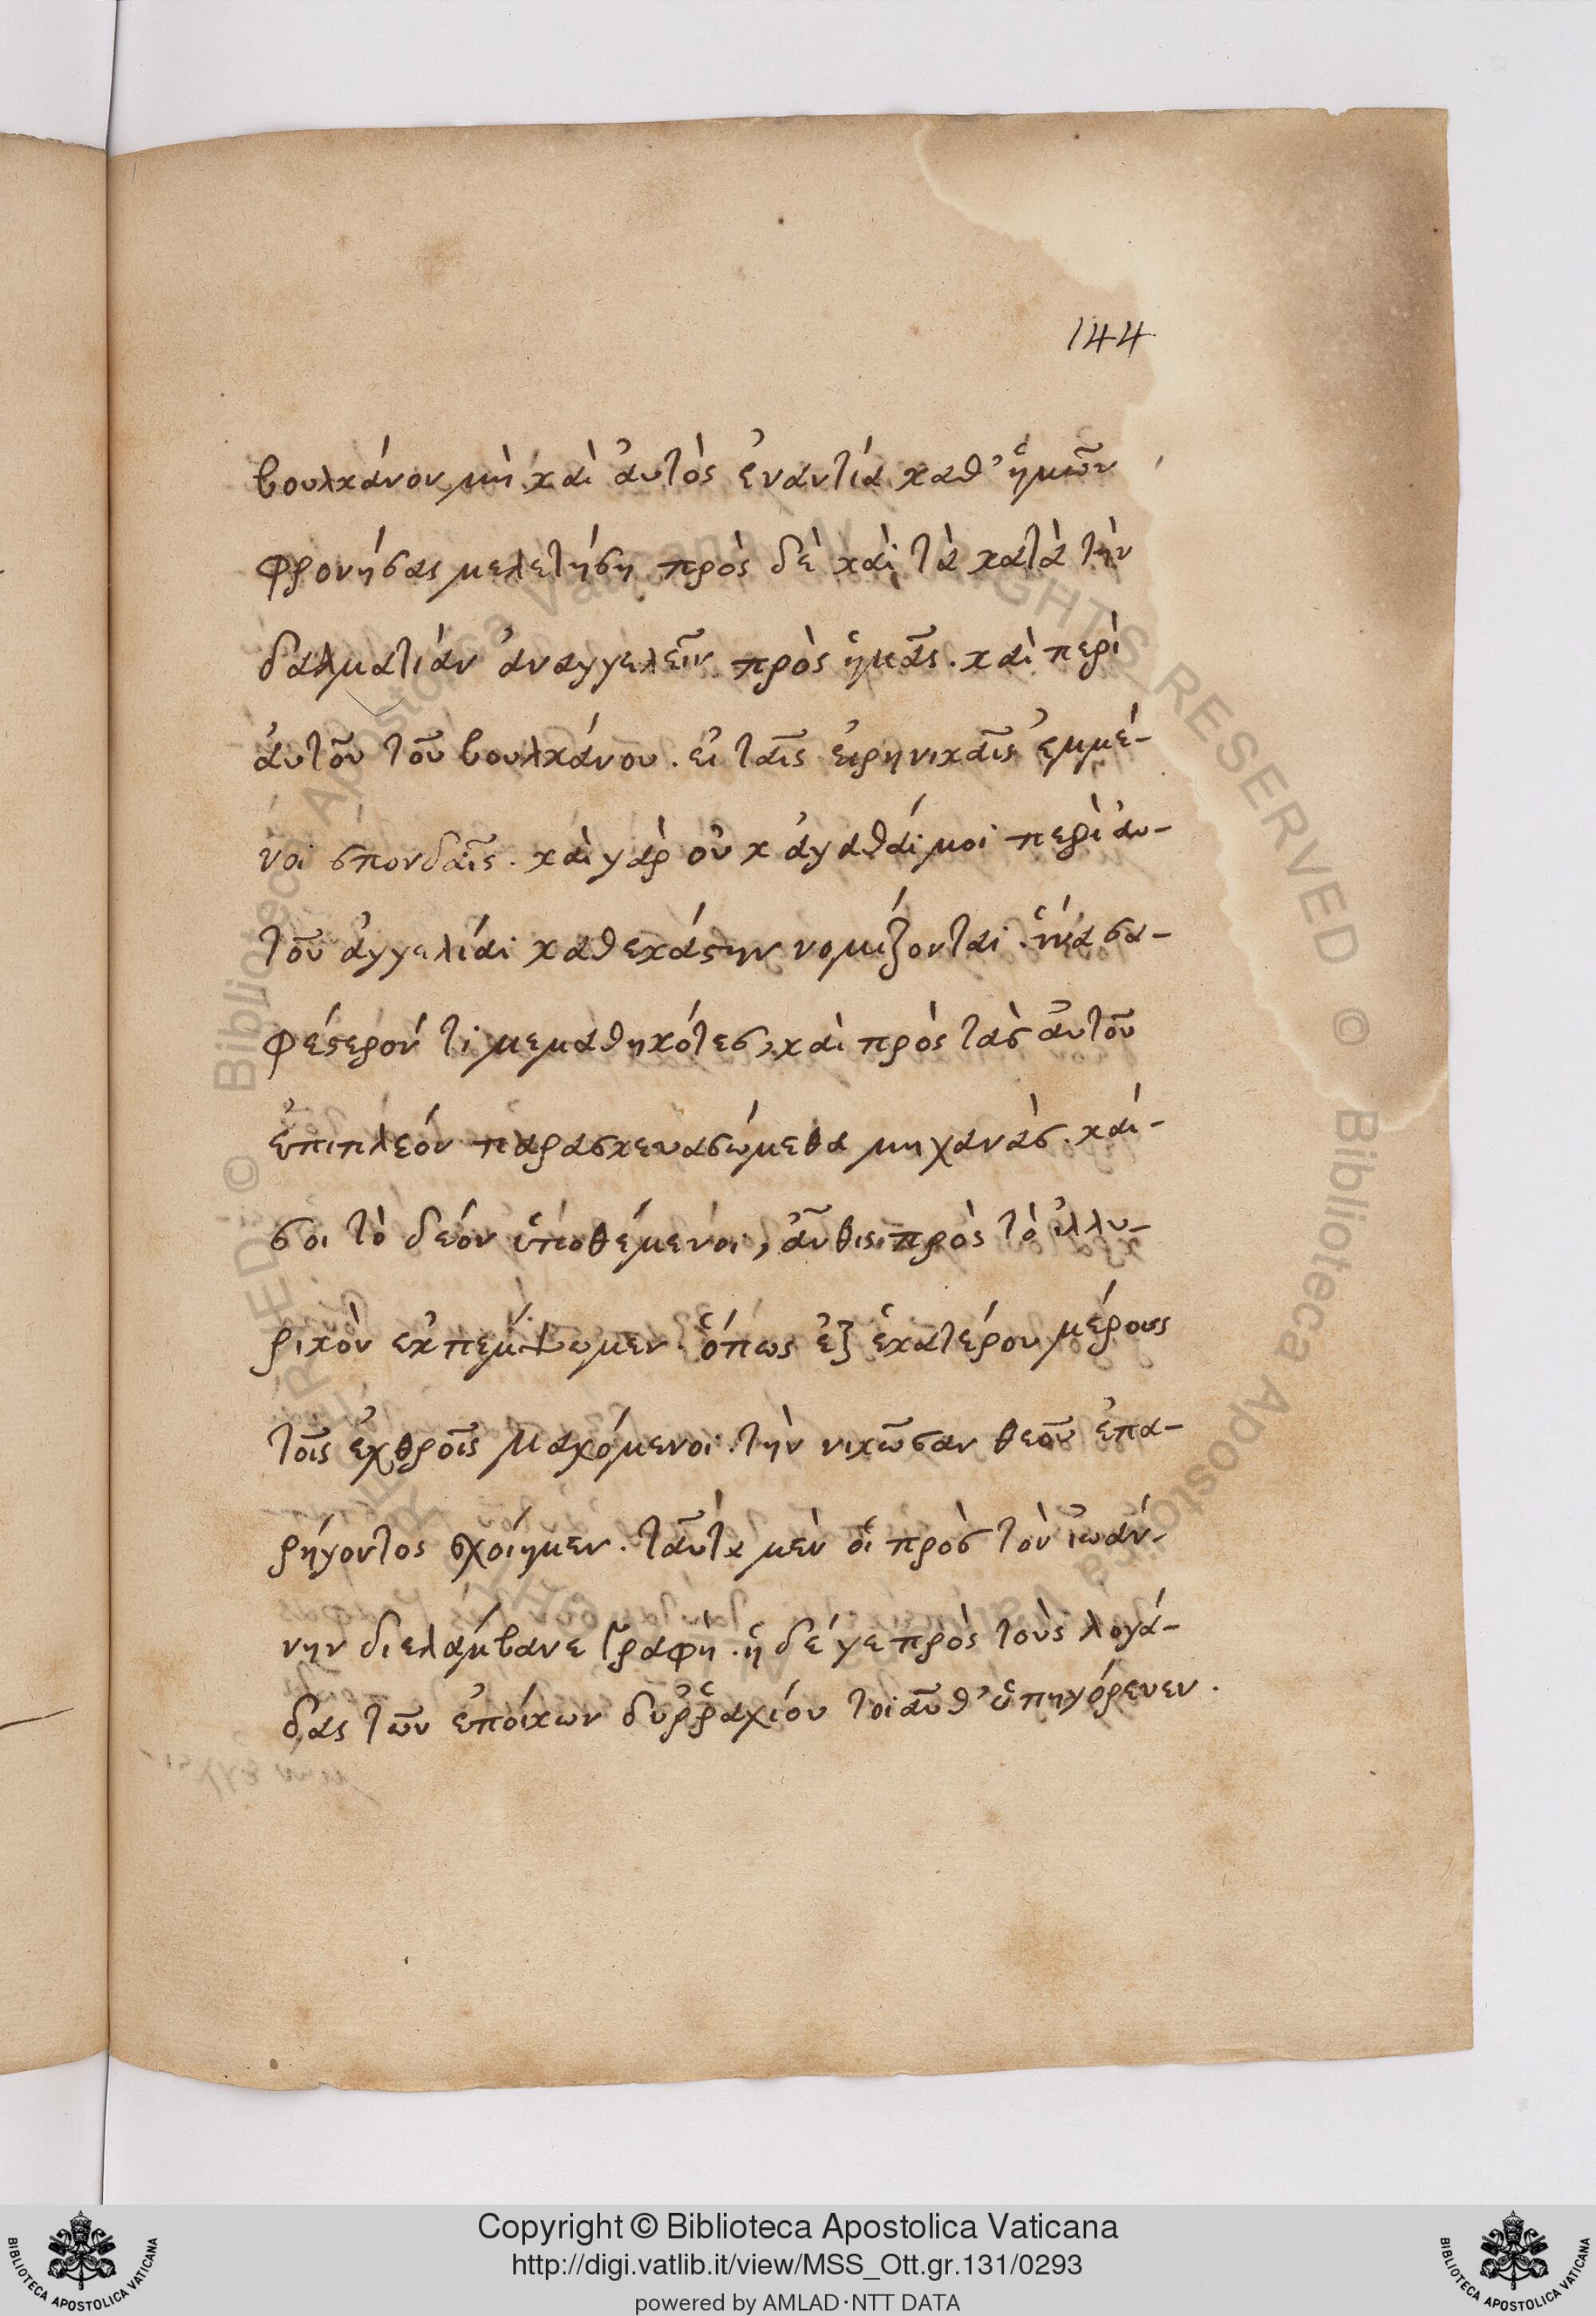 144
βουλκάνον, μὴ καὶ ἀυτὸς ἐναντία καθ' ἡμῶν
φρονήσας μελετήση. πρὸς δὲ καὶ τὰ κατὰ τὴν
δαλματίαν ἀναγγελεῖν πρὸς ἡμᾶς. καὶ περὶ
ἀυτοῦ τοῦ βουλκάνου. εἰ ταῖς εἰρηνικαῖς ἐμμέ-
νοι σπονδαῖς. καὶ γὰρ οὐκ ἀγαθάι μοι περὶ ἀυ-
τοῦ ἀγγελίαι καθεκάστην νομίζονται. ἵνα σα-
φέστερόν τι μεμαθηκότες, καὶ πρὸς τὰς ἀυτοῦ
ἐπιπλεόν παρασκευασώμεθα μηχανάς. καί-
σοι τὸ δεόν ὑποθέμενοι, ἆυθις πρὸς τὸ ἰλλυ-
ρικὸν εκπέμψωμεν. ὅπως ἐξ ἑκατέρου μέρους
τοῖς ἐχθροῖς μαχόμενοι. τὴν νικῶσαν θεοῦ ἐπα-
ρήγοντος σχοίημεν. ταῦτα μὲν ὁι πρὸς τὸν ἰωάν-
νην διελάμβανε γραφὴ. ἡ δέ γε πρὸς τοὺς λογά-
δας τῶν ἐποίκων δυῤῥαχίου τοιαῦθ' ὑπηγόρευεν.
Copyright © Biblioteca Apostolica Vaticana
http://digi.vatlib.it/view/MSS_Ott.gr.131/0293
powered by AMLAD·NTT DATA
BIBLIOTECA APOSTOLICA VATICANA
BIBLIOTECA APOSTOLICA VATICANA